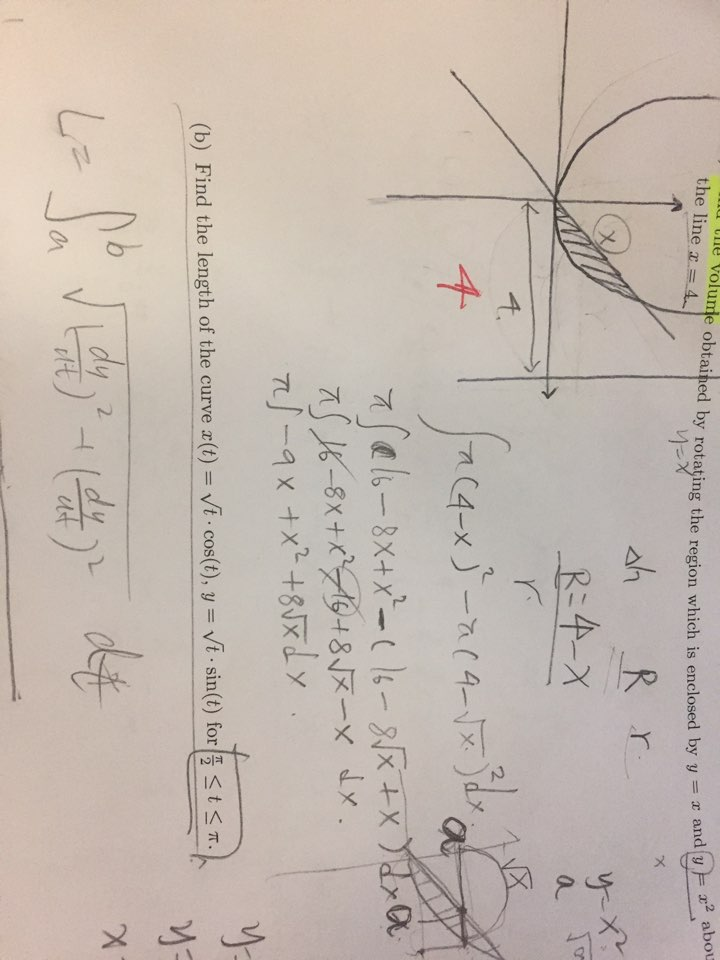 the volume obtained by rotating the region which is enclosed by y = x and y = x² about
the line x = 4.
y=x
x
Δh R r
y=x²
a
R=4-x
r
x
4
4
∫π(4-x)² - π(4-√x)² dx.
π∫16-8x+x²-(16-8√x+x) dx
π∫16-8x+x²-16+8√x-x dx.
π∫-9x+x²+8√x dx.
√x
a
a
(b) Find the length of the curve x(t) = √t · cos(t), y = √t · sin(t) for π/2 ≤ t ≤ π.
L = ∫ₐᵇ √((dy/dt)² + (dy/dt)²) dt
y=
y=
x